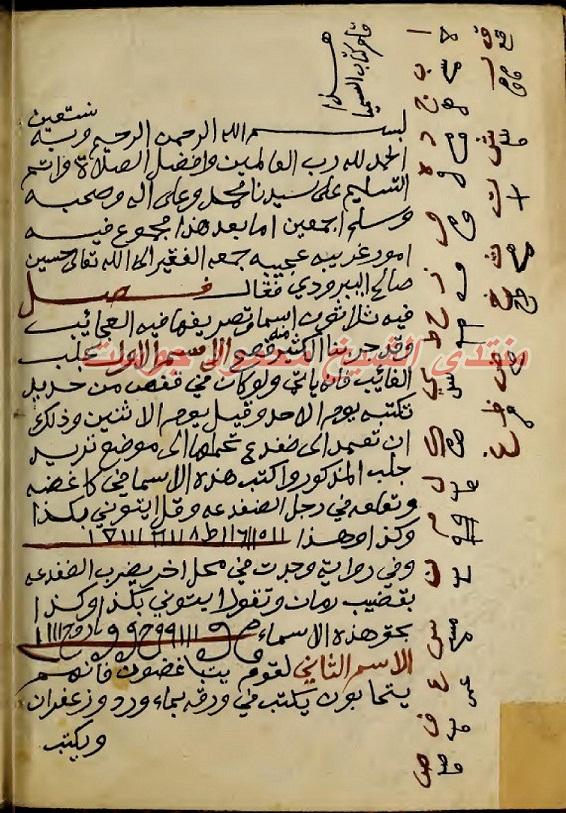 هذا
قلم كتاب السيميا
بسم الله الرحمن الرحيم وبه نستعين
الحمد لله رب العالمين وافضل الصلاة واتم
التسليم على سيدنا محمد وعلى اله وصحبه
وسلم اجمعين اما بعد هذا مجموع فيه
امور غريبه عجيبه جمعه الفقير الى الله تعالى حسين
صالح فقال فصل
فيه ثلاثون اسما وتصريفها فيه العجايب
وقد جربنا الاسم الاول يجلب
منتدى الشيخ محمود جودت
الغايب فانه ياتي ولو كان في قفص من حديد
تكتبه يوم الاحد وقيل يوم الاثنين وذلك
ان تعمد الى ضفدع تحملها الى موضع تريد
جلب المذكور واكتب هذه الاسما في كاغضه
وتعلقه في رجل الضفدعه وقل ايتوني بكذا
وكذا وهذا
وفي رواية وجدت في محل اخر يضرب الضفدعه
بقضيب رمان وتقول ايتوني بكذا وكذا
بحق هذه الاسماء
الاسم الثاني لقوم يتباغضون فانهم
يتحابون يكتب في ورقه بماء ورد وزعفران
ويكتب
ا ب ج د ه و ز ح ط ي ك ل م ن س ع ف ص
ق ر ش ت ث خ ذ ض ظ غ